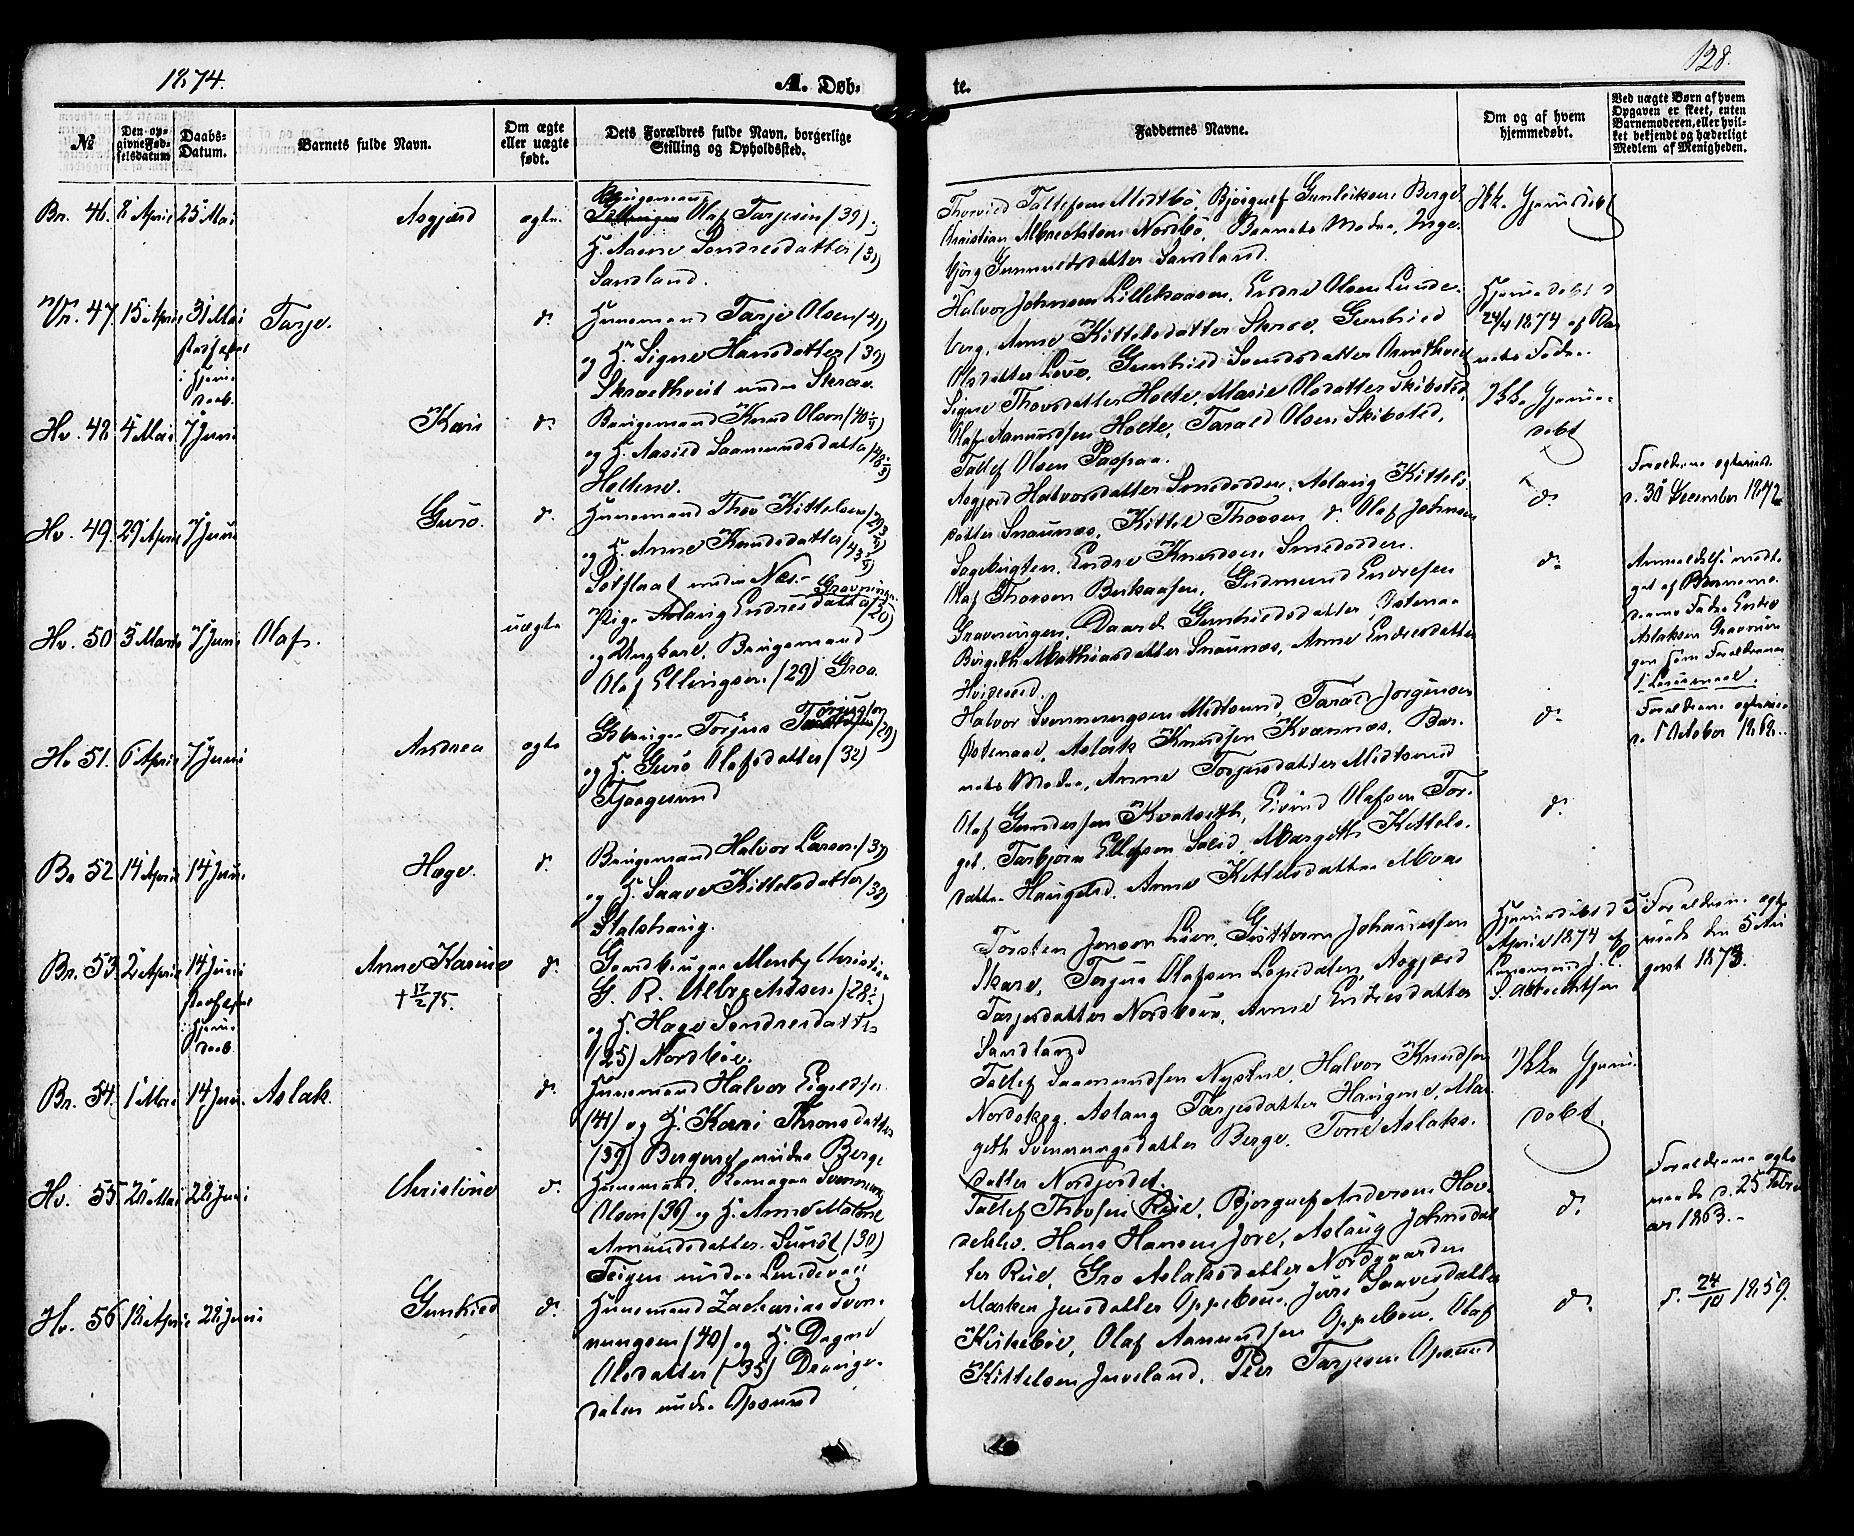 1874.
A. Døb-
te.
128.
№
Den op-
givne Fød-
selsdatum
Daabs-
Datum.
Barnets fulde Navn.
Om ægte
eller uægte
født.
Dets Forældres fulde Navn, borgerlige
Stilling og Opholdssted.
Faddernes Navne.
Om og af hvem
hjemmedøbt.
Ved uægte Børn af hvem
Opgaven er skeet, enten
Barnemoderen, eller hvil-
ket bekjendt og hæderligt
Medlem af Menigheden.
Br. 46. 8 April 25 Mai
Asgjærd
ægte
Brugemand
Olaf Tarjesen (39).
H. Aasne Sondresdatter (31)
Sandland.
Torleif Tallefsen Midtbö, Björguf Gunleiksen Berge
Christian Albrechtsen Nordbö, Barnets Moder, Inge-
björg Gunnuldsdatter Sandland.
Ikke Hjemdöbt
Vr. 47. 15 April 31 Mai
stadfæstet
i Hjem-
daab.
Tarje.
d.
Huusmand Tarje Olsen (41)
og H. Signe Hansdatter (39)
Skraathveit under Skræe.
Halvor Johnsen Lillekaasen, Endre Olsen Lunde-
berg, Anne Kittelsdatter Skræe, Gunhild
Olsdatter Löve, Gunhild Svendsdatter
Hjemdöbt d
24/4 1874 af Bar-
nets Fader
Hv. 48 4 Mai 7 Juni
Kari
d.
Brugemand Knud Olsen (40
og H. Aasild Saamundsdatter (48
Holtene.
Signe Thorsdatter Holte, Marie Olsdatter Skibsted,
Olaf Aanundsen Holte, Tarald Olsen Skibsted,
Tallef Olsen Paspaa.
Ikke Hjemme-
döbt
Hv. 49. 29 April 7 Juni
Guro.
d.
Huusmand Thor Kittelsen (29
og H. Anne Knudsdatter (43
Sötflaat under Næs.
Asgjerd Halvorsdatter Smedodden, Aslaug Kittels-
datter Snaunæs, Kittel Thorsen d. Olaf Johnsen
Sagebugten, Endre Knudsen Smedodden.
d.
Forældrene ægteviede
d. 30 December 1872
Hv. 50 3 Marts 7 Juni Olaf.
uægte
Pige Aslaug Endresdatter (20) Gravningen
og Ungkarl, Brugemand
Olaf Ellingsen (29) Groe.
Olaf Thorsen Berkaasen, Gudmund Endresen
Gravningen, Daard Gunhildsdatter Östenaa
Birgith Mathiasdatter Snaunæs, Anne Endresdatter
Hvideseid.
d.
Anmeldelse modta-
get af Barnemo-
derens Fader Endre
Aslaksen Gravnin-
gen Som Forældrenes
1ste Leiermaal.
Hv 51. 6 April 7 Juni
Andrea
ægte
Torjus Torjusen (29)
og H. Guro Olafsdatter (32)
Fjaagesund
Halvor Svenningsen Midtsund, Tarald Jörgensen
Östenaae, Aslak Knudsen Kvannæs, Bar-
nets Moder, Anne Torjesdatter Midtsund
d.
Forældrene ægtevie-
de 5 October 1868.
Br 52 14 April 14 Juni
Hæge.
d.
Brugemand Halvor Larsen (37)
og H. Saave Kittelsdatter (39)
Stalshaug.
Olaf Gundersen Kvalseth, Eivind Olafsen Tor-
get, Tarbjörn Ellefsen Solid, Margith Kittels-
datter Haugelid, Anne Kittelsdatter Moen
d.
Br. 53. 2 April 14 Juni
stadfæstet
i Hjem-
daab.
Anne Karine
† 17/2 75.
d.
Christian
G. R. Albrechtsen (28
og H. Hæge Sondresdatter
(25) Nordböe.
Torsten Jensen Lien, Guttorm Johannessen
Skare, Torjus Olafsen Lopsdalen, Asgjærd
Tarjesdatter Nordböen, Anne Endresdatter
Sandland
Hjemmedöbt d 5
April 1874 af
Lensmand J. C.
S. Albrechtsen
Forældrene ægte-
viede den 5 Au-
gust 1873.
Br. 54. 1 Mai 14 Juni Aslak.
d.
Huusmand Halvor Eigeldsen
(41) og H. Kari Thronsdatter
(39) Bergene under Berge
Tallef Saamundsen Nystul, Halvor Knudsen
Nordskog, Aslaug Tarjesdatter Haugene, Mar-
gith Svenningsdatter Berge, Tone Aslaks-
datter Nordjordet.
Ikke Hjem-
döbt.
Hv. 55. 20 Mai 28 Juni
Christine
d.
Huusmand, Skomager Svenning
Olsen (39) og H. Anne Malene
Amundsdatter Sundt (30)
Teigen under Lundevall
Tallef Thorsen Rue, Björguf Andersen Hov-
dekler. Hans Hansen Jore, Aslaug Johnsdat-
ter Rue, Gro Aslaksdatter Nordgaarden
d.
Forældrene ægte-
viede d. 25 Febru-
ar 1863.
Hv. 56 18 April 28 Juni
Gunhild
d.
Huusmand Zacharias Sven-
nungsen (40) og H. Dagne
Olsdatter (35) Drange-
dalen under Opsund
Marken Jensdatter Oppeböen, Jore Saavesdatter
Kirkeböe, Olaf Aanundsen Oppeböen, Olaf
Kittelsen Juveland, Peer Tarjesen Opsund
d.
d. 24/10 1859.